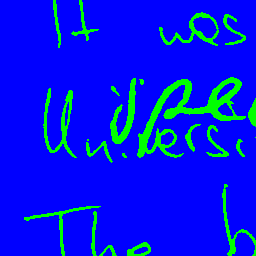 It was
Universi
The b